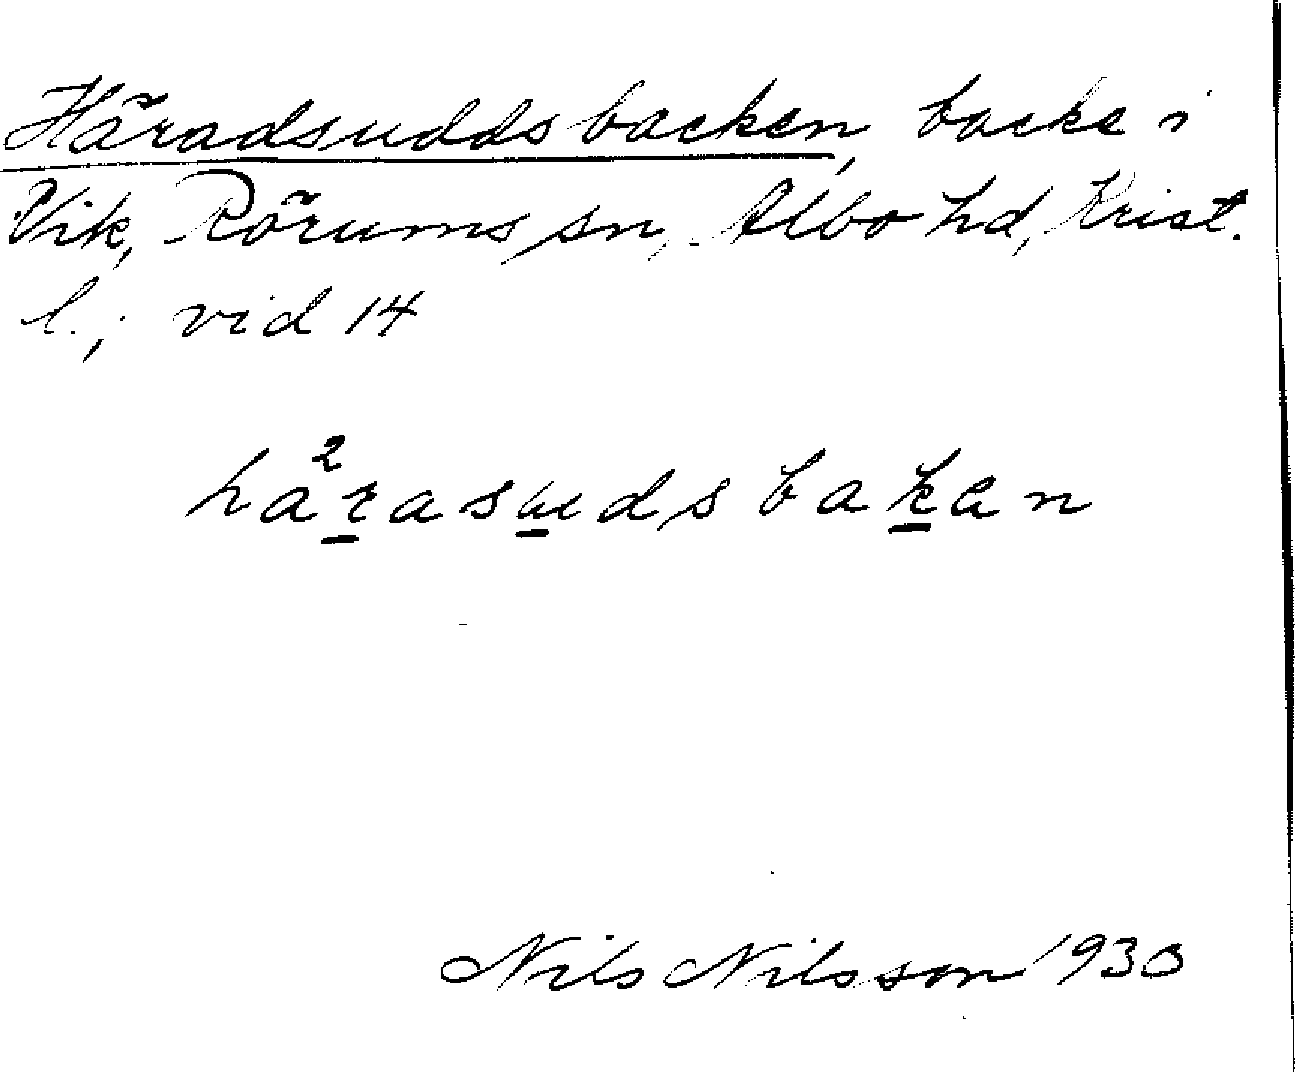 Häradsuddsbacken, backe i
Vik, Rörums sn, Albo hd, Krist.
l.; vid 14
hä²rasudsbakan
Nils Nilsson 1930